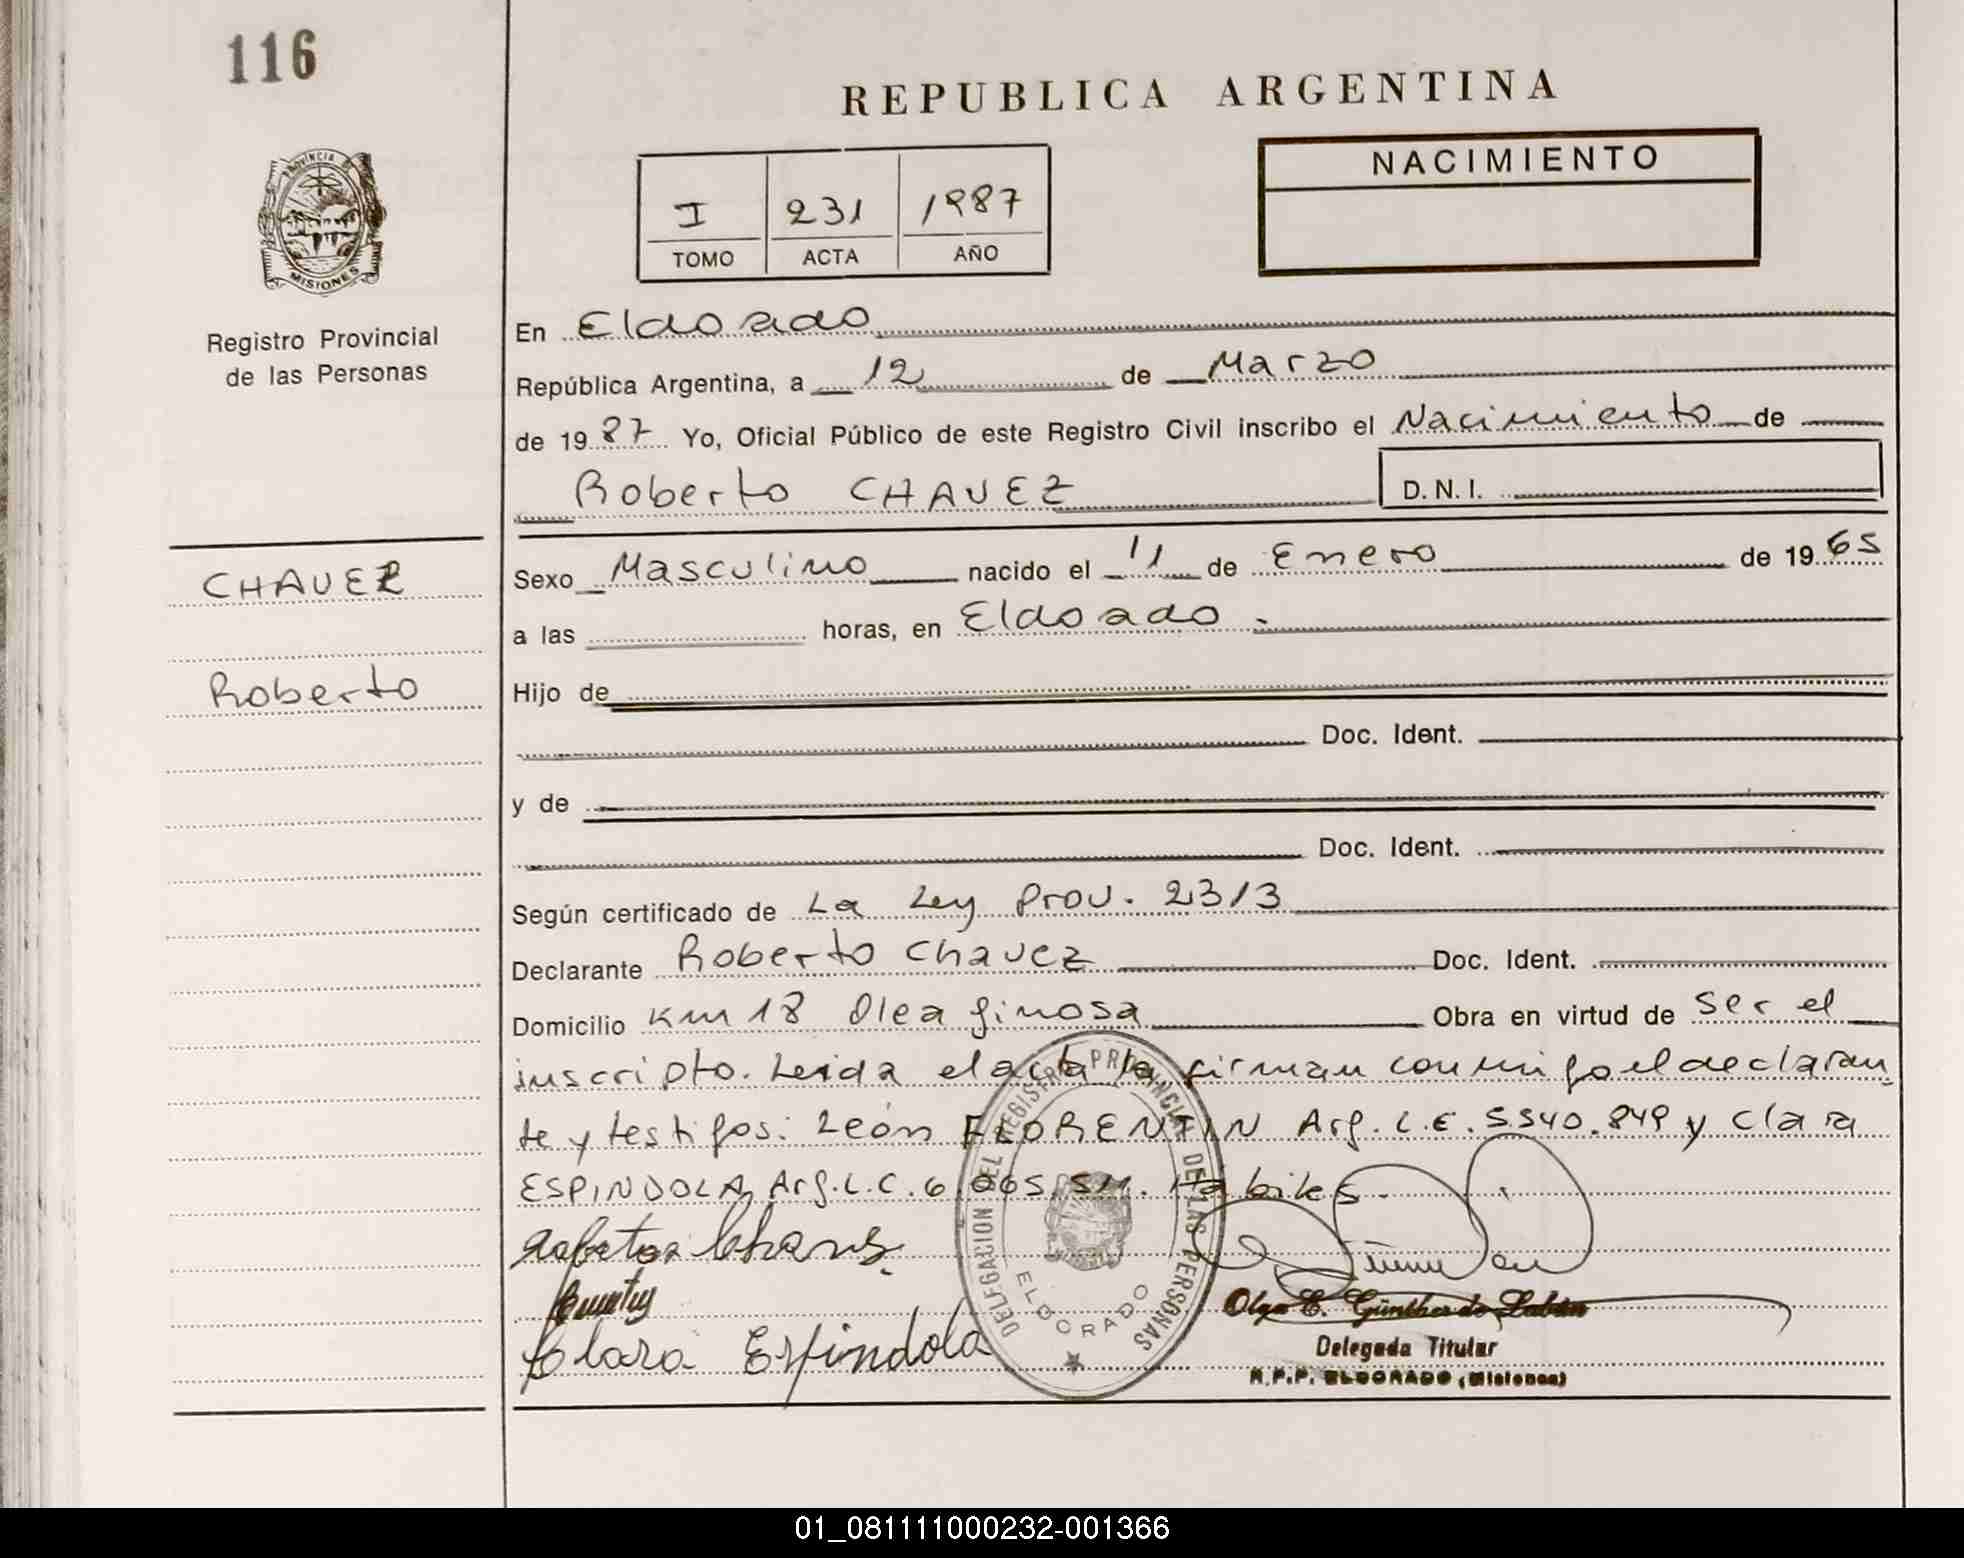 116
REPUBLICA ARGENTINA
PROVINCIA DE
MISIONES
Registro Provincial
de las Personas
I 231 1987
TOMO ACTA AÑO
NACIMIENTO
En Eldorado
República Argentina, a 12 de Marzo
de 1987 Yo, Oficial Público de este Registro Civil inscribo el Nacimiento de
Roberto CHAVEZ D. N. I.
CHAVEZ
Roberto
Sexo Masculino nacido el 11 de Enero de 1965
a las horas, en Eldorado.
Hijo de
Doc. Ident.
y de
Doc. Ident.
Según certificado de La Ley Prov. 2313
Declarante Roberto Chavez Doc. Ident.
Domicilio Km 18 Oleaginosa Obra en virtud de ser el
inscripto. Leida el acta la firman conmigo el declaran
te y testigos: León FLORENTIN Arg. L.E. 5.540.849 y Clara
ESPINDOLA, Arg. L.C. 6.065. Habiles.
Clara Espindola
DELEGACION DEL REGISTRO PROVINCIAL DE LAS PERSONAS
ELDORADO
Olga E. Günther de Labán
Delegada Titular
R.P.P. ELDORADO (Misiones)
01_081111000232-001366